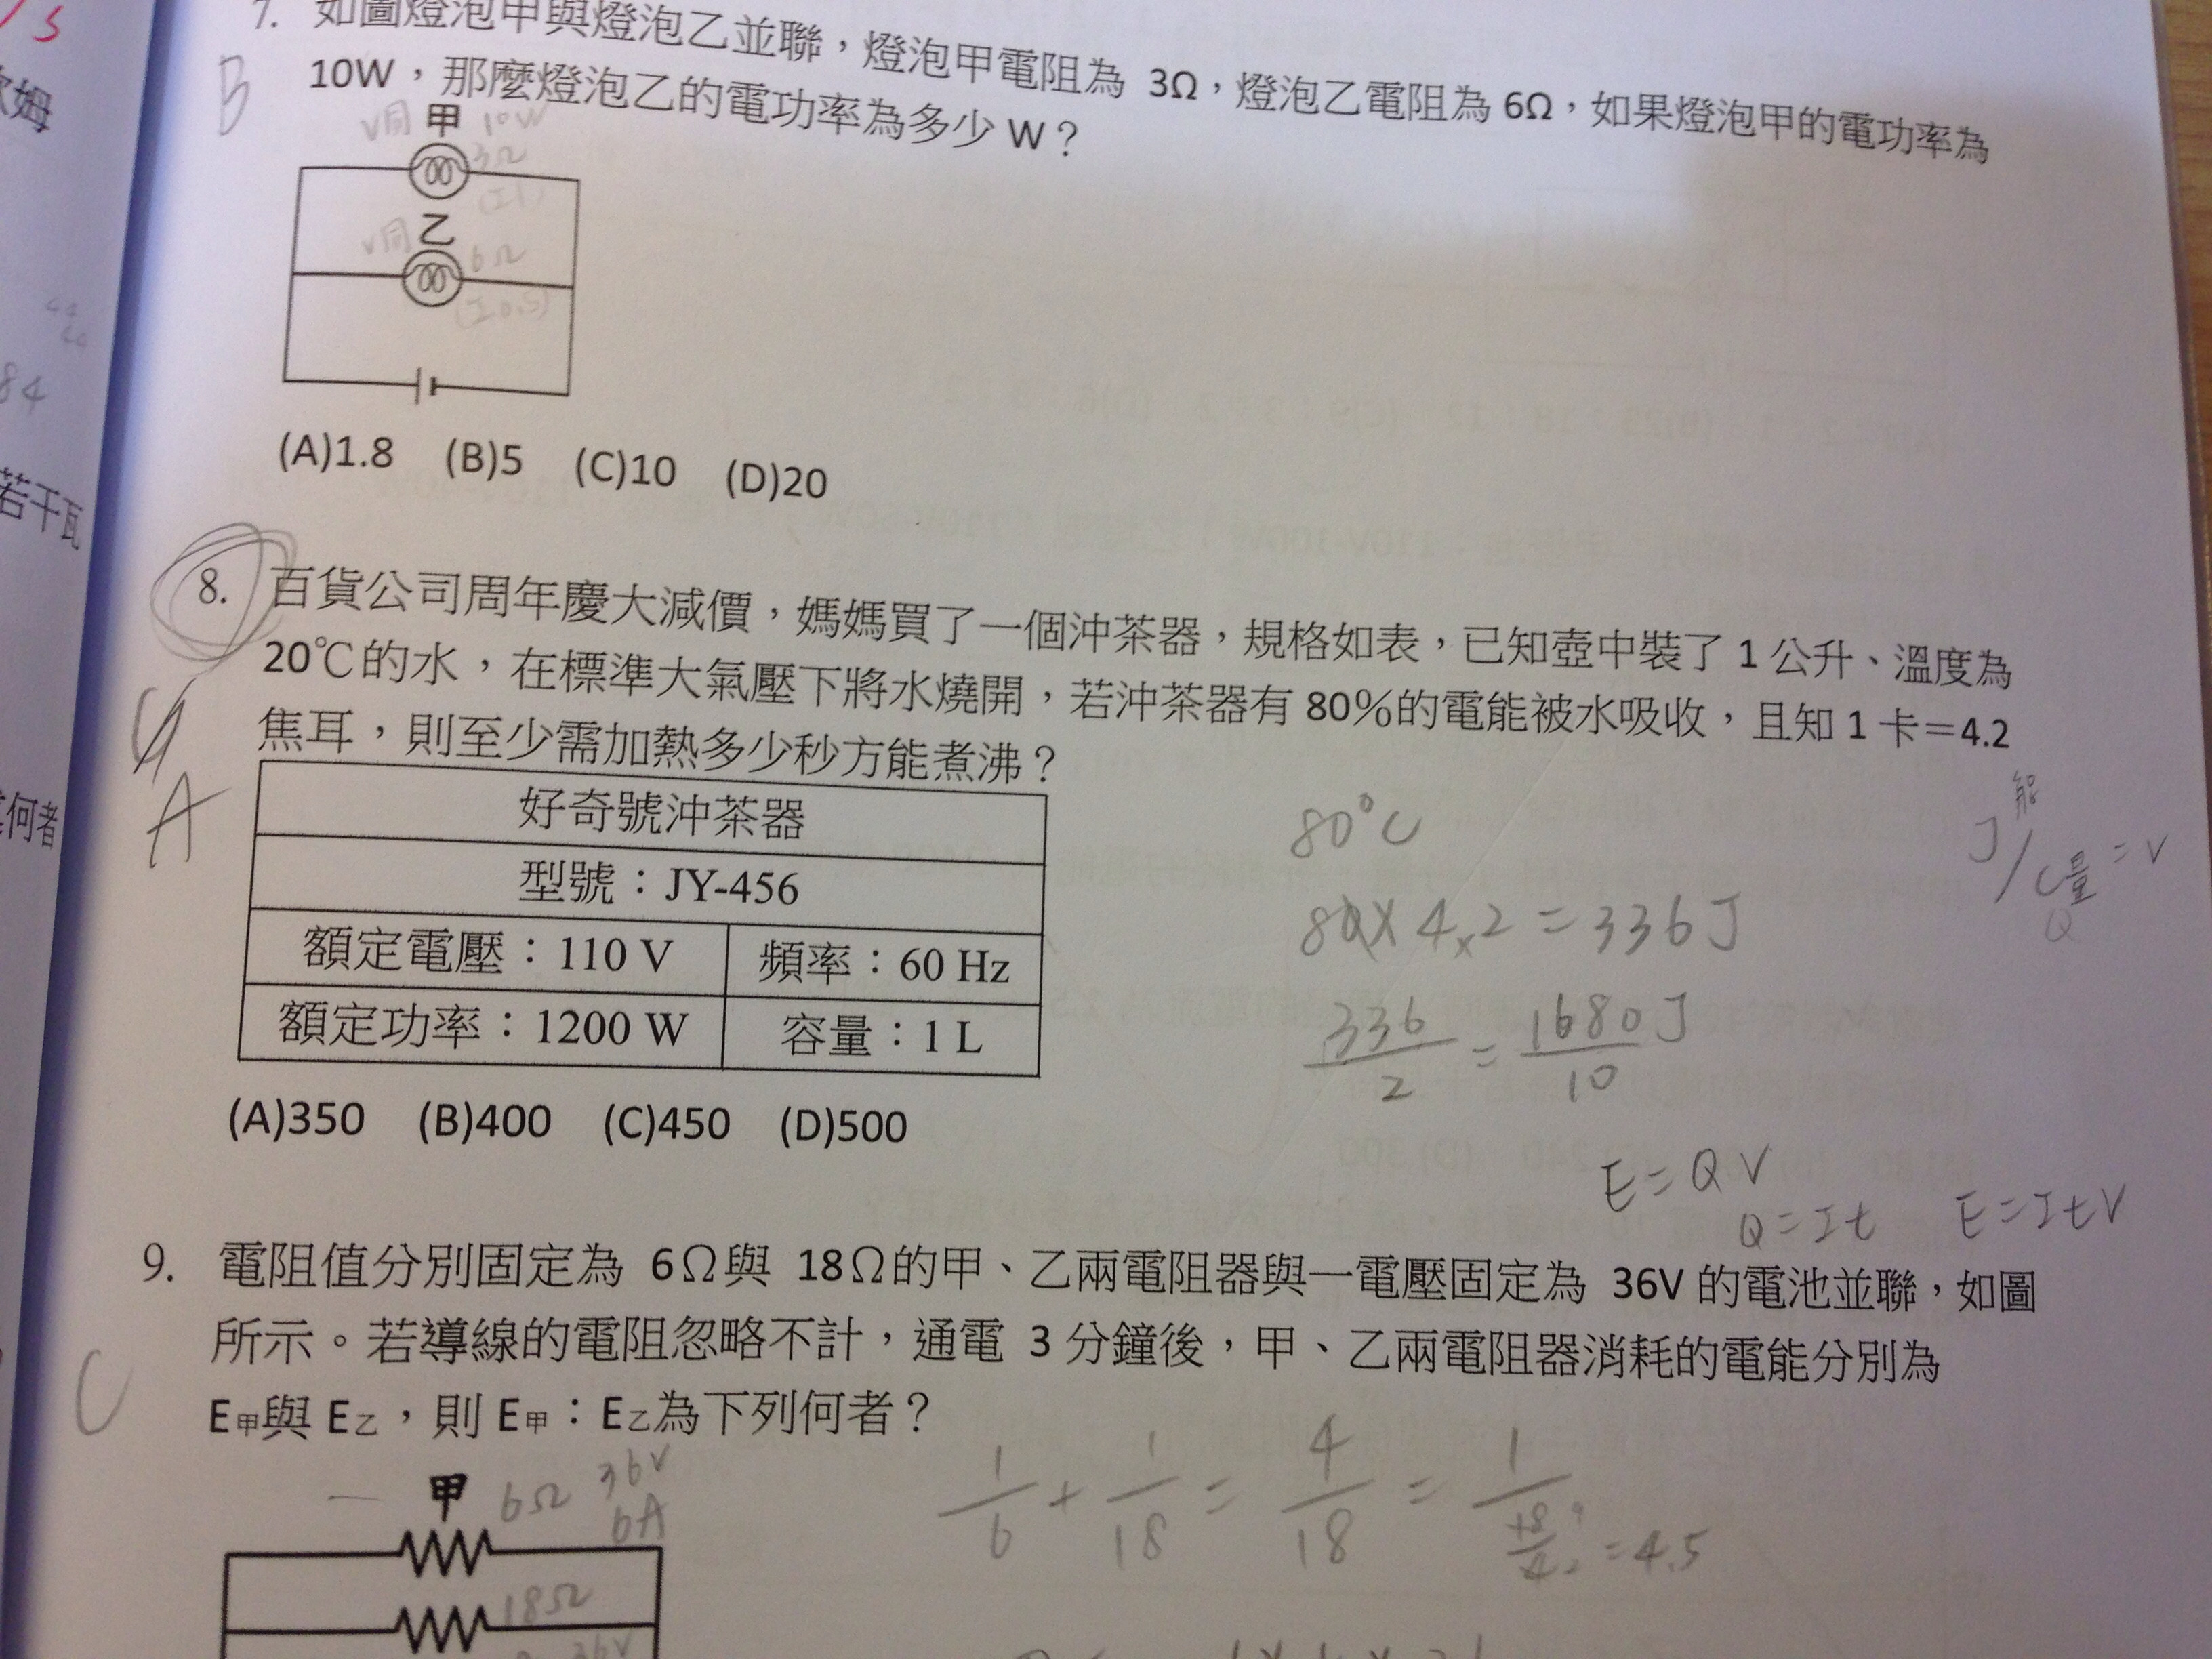 7. 如圖燈泡甲與燈泡乙並聯，燈泡甲電阻為 3Ω，燈泡乙電阻為6Ω，如果燈泡甲的電功率為
B
10W，那麼燈泡乙的電功率為多少W？
V同 甲 10W
3Ω
(I1)
V同 乙 6Ω
(I0.5)
(A)1.8 (B)5 (C)10 (D)20
歐姆
84
若干瓦
何者
8. 百貨公司周年慶大減價，媽媽買了一個沖茶器，規格如表，已知壺中裝了1公升、溫度為
20℃的水，在標準大氣壓下將水燒開，若沖茶器有80%的電能被水吸收，且知1卡＝4.2
焦耳，則至少需加熱多少秒方能煮沸？
A
好奇號沖茶器
型號：JY-456
額定電壓：110 V 頻率：60 Hz
額定功率：1200 W 容量：1 L
80°C
J能/C量=V
Q
336J
336/2 = 1680/10 J
(A)350 (B)400 (C)450 (D)500
E=QV
Q=It E=ItV
9. 電阻值分別固定為 6Ω與 18Ω的甲、乙兩電阻器與一電壓固定為 36V的電池並聯，如圖
所示。若導線的電阻忽略不計，通電 3分鐘後，甲、乙兩電阻器消耗的電能分別為
C
E甲與E乙，則E甲：E乙為下列何者？
甲 6Ω 36V
6A
1/6 + 1/18 = 4/18 = 1/(18/4) =4.5
18Ω
36V